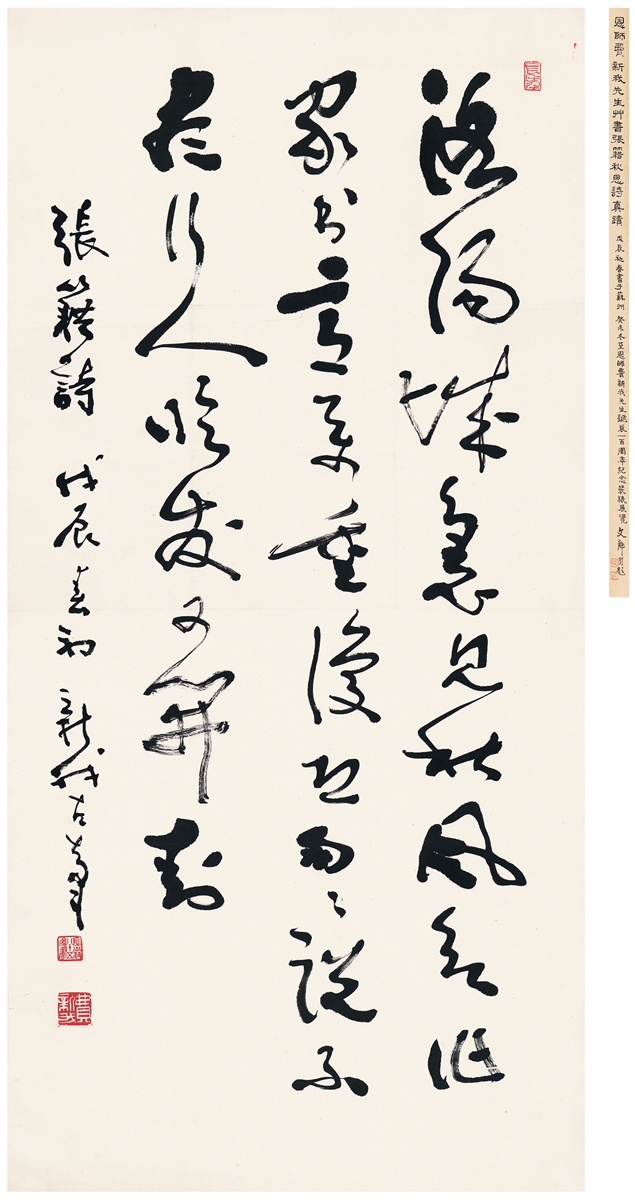 洛陽城裏見秋風欲作
家書意萬重復恐匆々說不
盡行人臨發又開封
張籍詩 戊辰春初 新我左筆
費新我
恩師費新我先生艸書張籍秋思詩真蹟 戊辰初春書于蘇州 癸未冬至恩師費新我先生誕辰一百周年紀念裝裱展覽